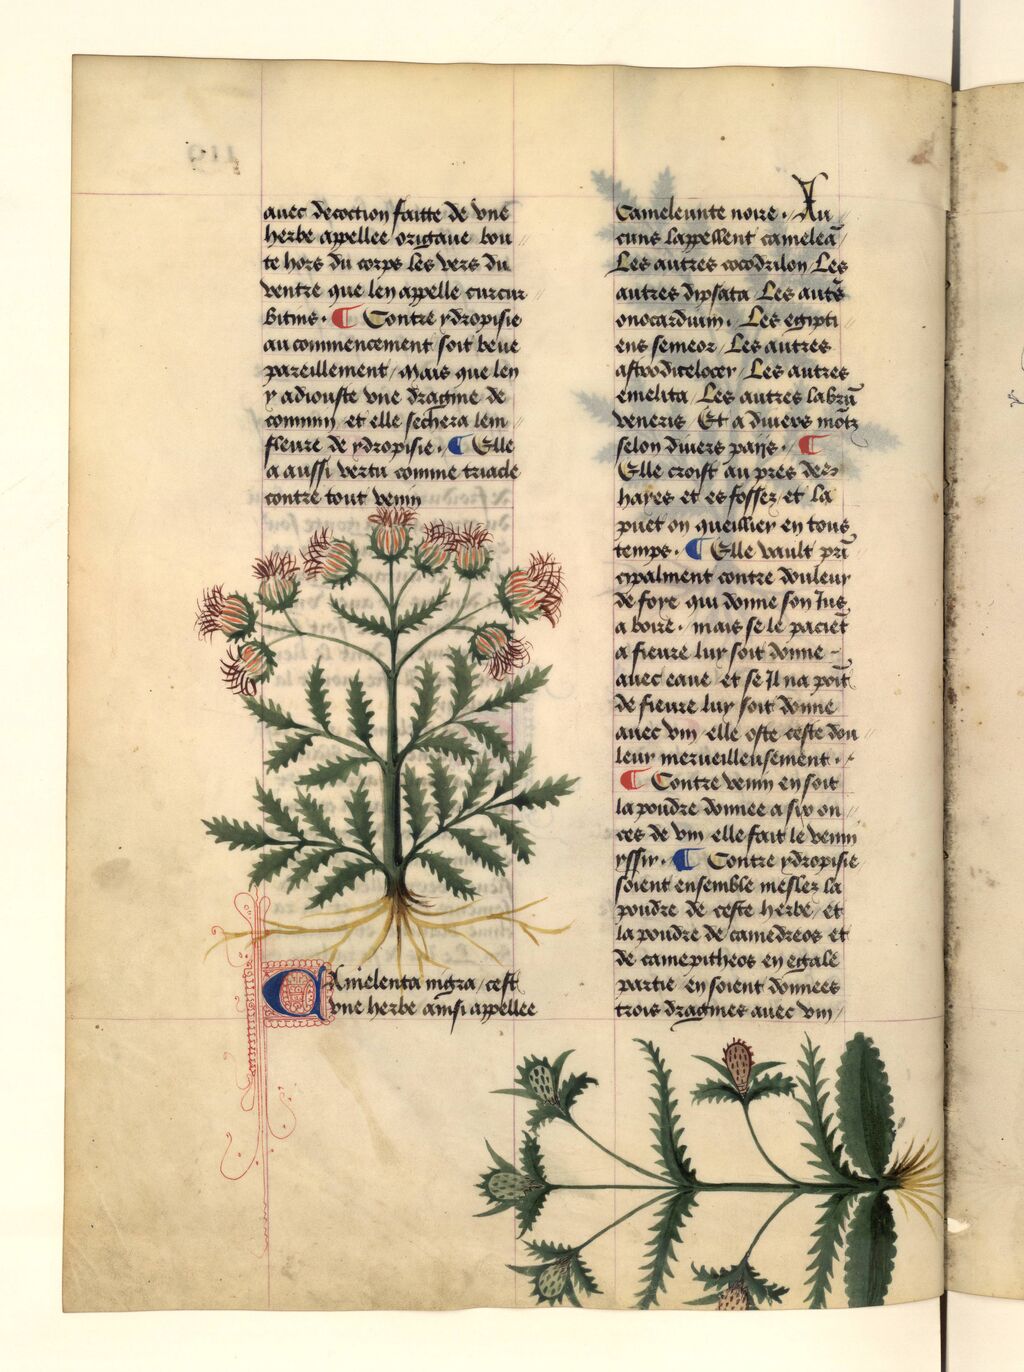 avec decoction faitte de vne
herbe appellee origane bou
te hors du corps les vers du
ventre que len appelle curcur
bitins. ¶ Contre ydropisie
au commencement soit beue
pareillement / Mais que len
y adiouste vne dragme de
commin / et elle sechera lem
fleure de ydropisie. ¶ Elle
a aussi vertu comme triacle
contre tout venin
CAmelenta nigra / cest
vne herbe ainsi appellee
Cameleunte noire. Au
cuns lappellent cameleā /
Les autres cocodrilon Les
autres dipsata Les aut̄s
onocardium. Les egipti
ens semeor / Les autres
afroditelocer / Les autres
emelita / Les autres labrū
veneris Et a divers motz
selon divers pays. ¶
Elle croist au pres des
hayes et es fossez / et la
puet on queillier en tous
temps. ¶ Elle vault prī
cipalment contre douleur
de foye qui donne son Jus
a boire. mais se le paciēt
a fievre luy soit donne
avec eaue et se Il na poīt
de fievre luy soit donne
avec vin elle oste ceste dou
leur merveilleusement.
¶ Contre venin en soit
la poudre donnee a six on
ces de vin elle fait le venin
yssir. ¶ Contre ydropisie
soient ensemble meslez la
poudre de ceste herbe / et
la poudre de camedreos et
de camepitheos en egale
partie / en soient donnees
trois dragmes avec vin /